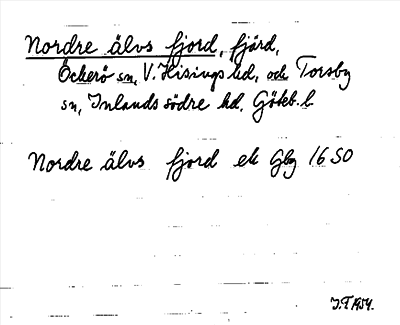 Nordre älvs fjord, fjärd,
Öckerö sn, V. Hisings hd, och Torsby
sn, Inlands södre hd, Göteb. l.
Nordre älvs fjord ek Gbg 16 SO
J.F. 1954.